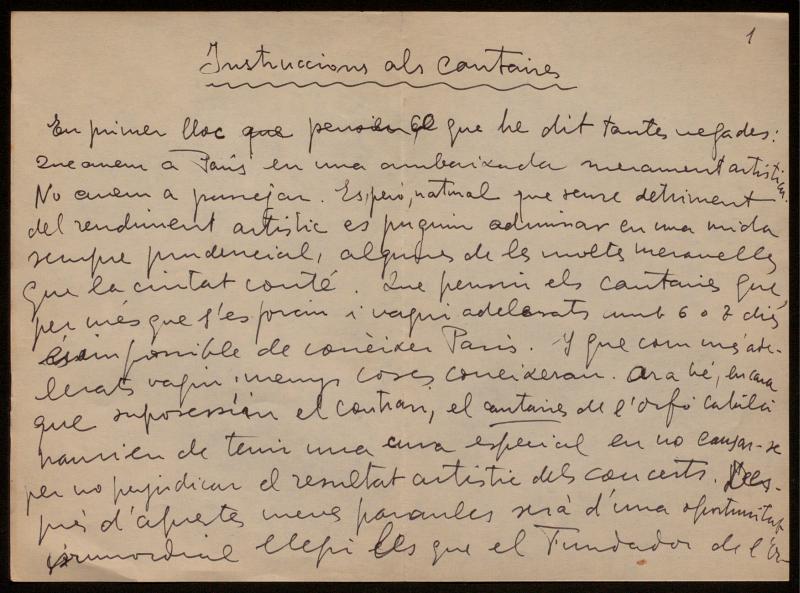 1
Instruccions als cantaires
En primer lloc que pensin el que he dit tantes vegades:
Que anem a París en una ambaixada merament artística.
No anem a passejar. Es, però, natural que sense detriment
del rendiment artistic es puguin admirar en una mida
sempre prudencial, algunes de les moltes meravelles
que la ciutat conté. Que pensin els cantaires que,
per més que s'esforcin i vagin adelerats amb 6 o 7 dies
és impossible de conèixer Paris. Y que com més ade-
lerats vagin, menys coses coneixeran. Ara bé, encara
que suposessin el contrari, el cantaires de l'Orfó català
haurien de tenir una cura especial en no cansar-se
per no perjudicar el resultat artistic dels concerts. Des-
prés d'aquestes meves paraules serà d'una oportunitat
primordial llegir les que el Fundador de l'Or-